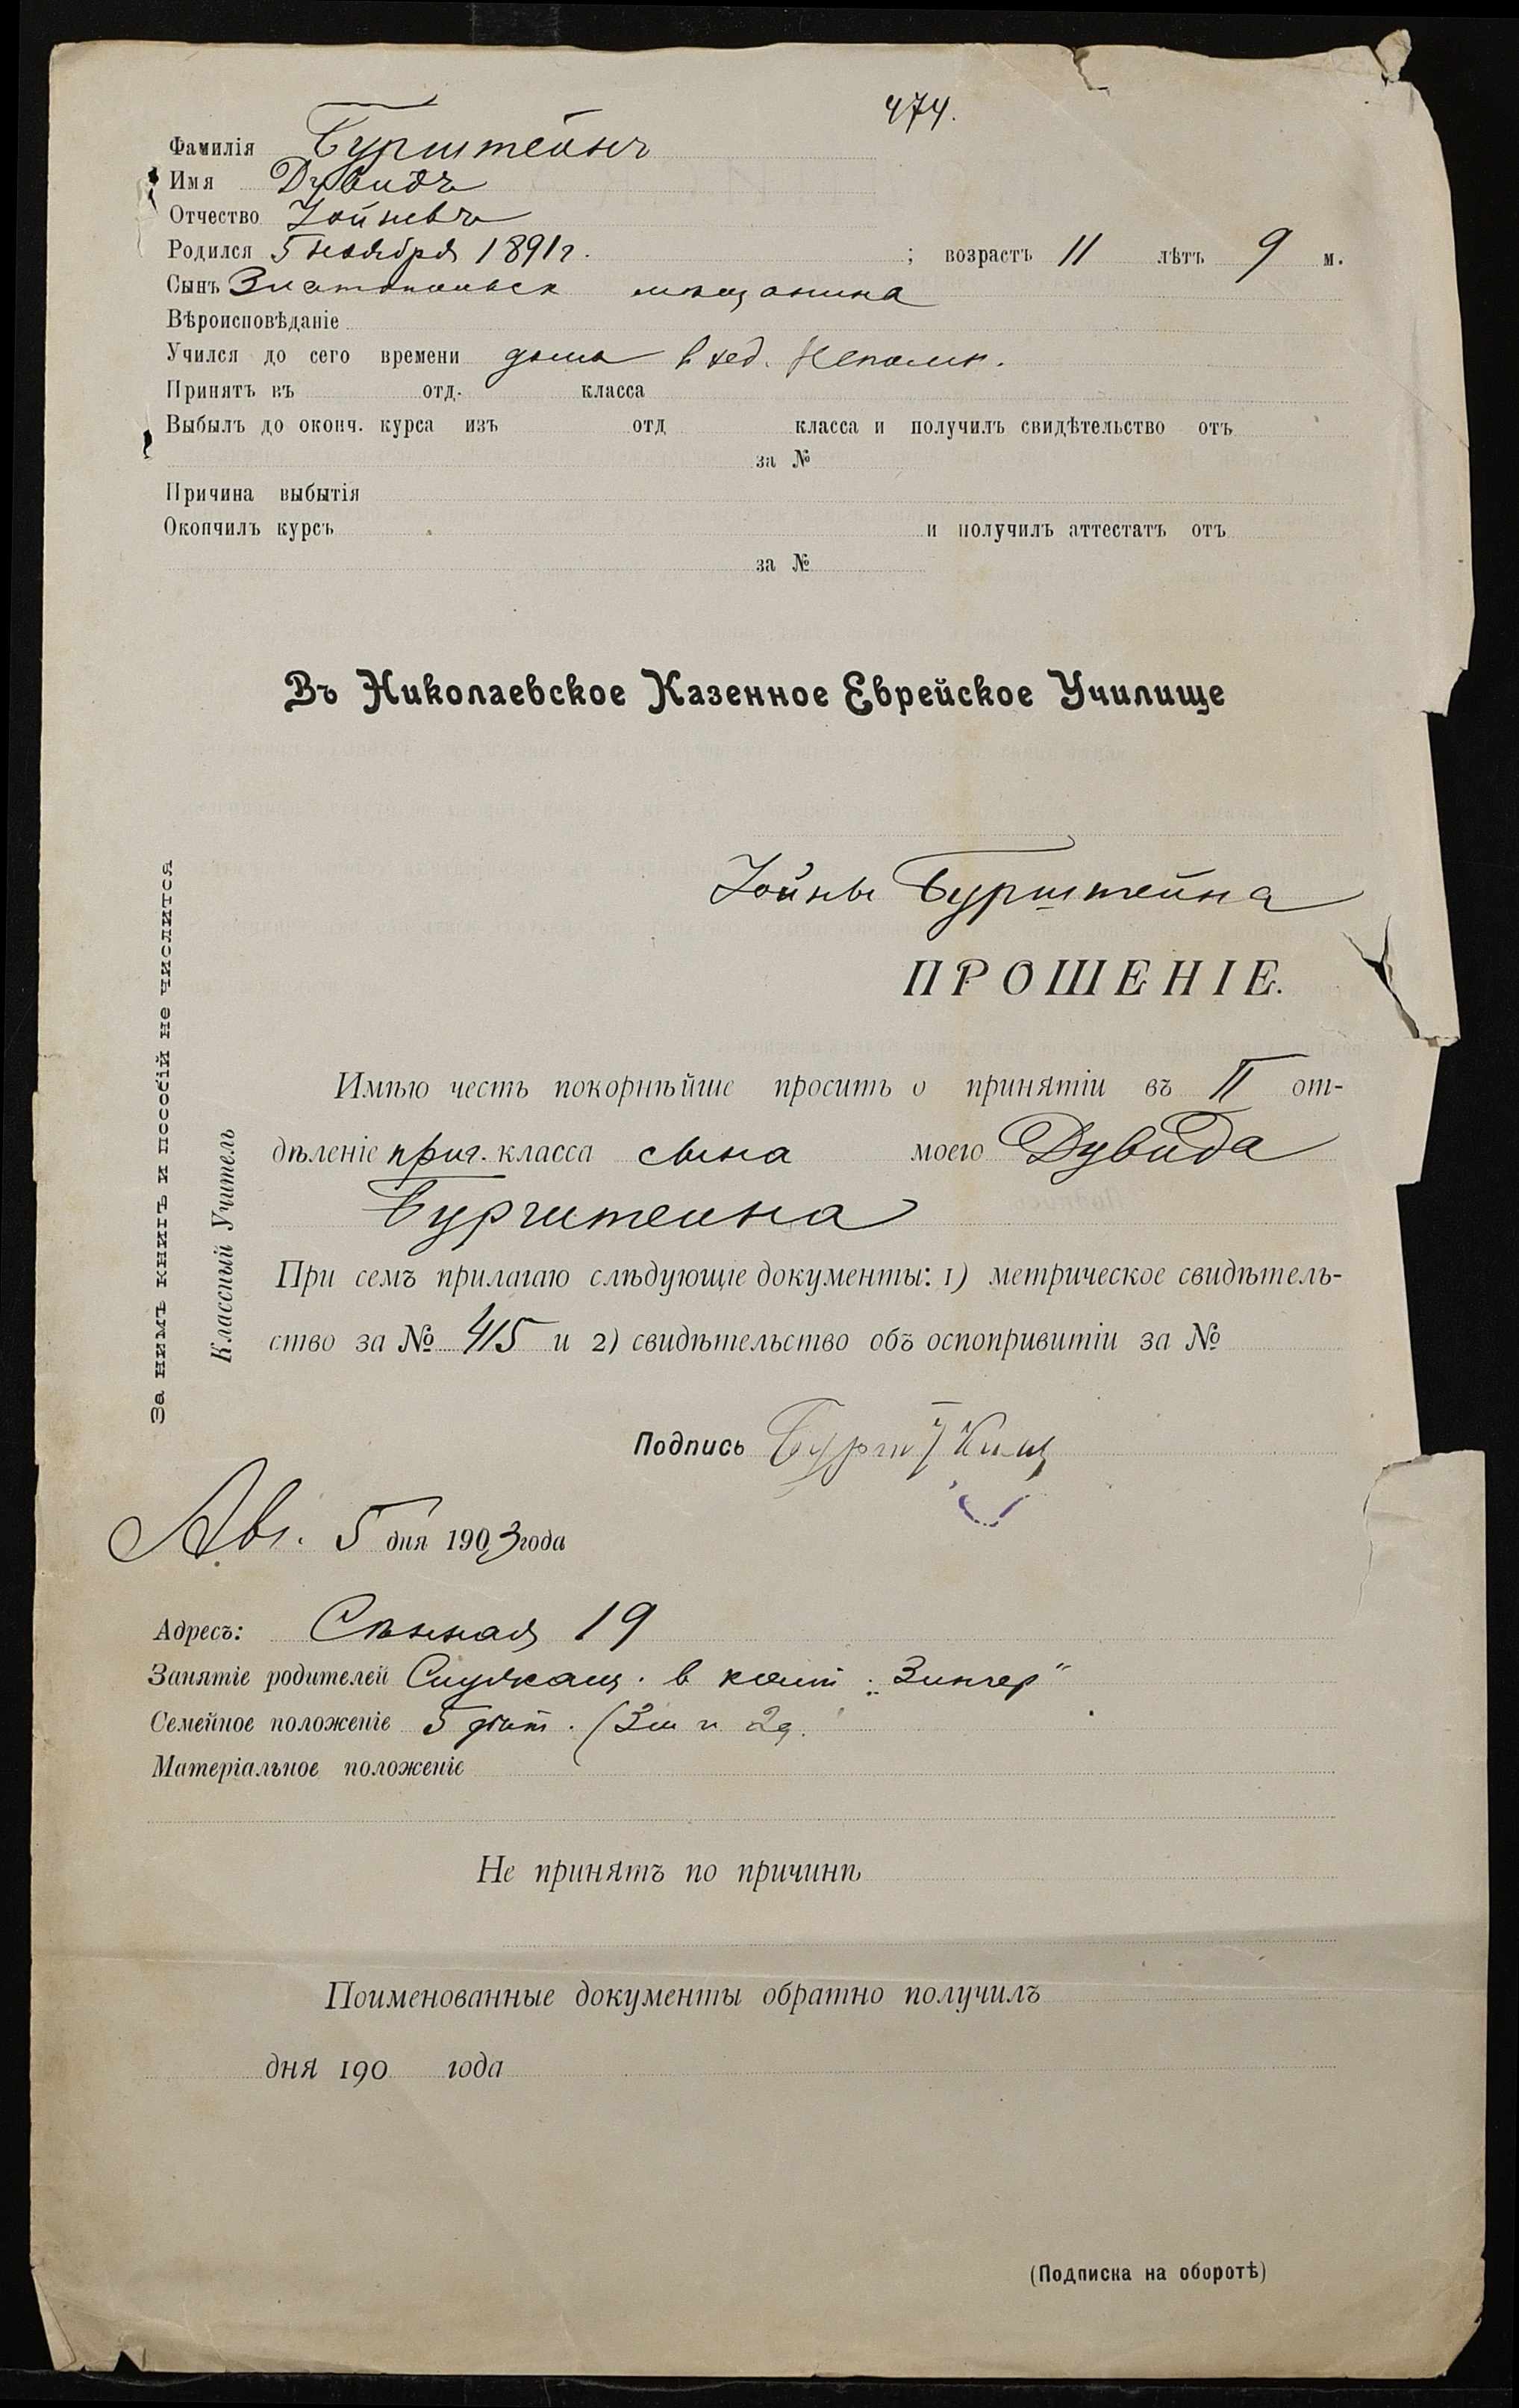 474.
Фамилія Бурштейнъ
Имя Дувидъ
Отчество Іойневъ
Родился 5 ноября 1891 г. ; возрастъ 11 лѣтъ 9 м.
Сынъ Златопольск мѣщанина
Вѣроисповѣданіе
Учился до сего времени дома в хед.
Принятъ въ отд. класса
Выбылъ до оконч. курса изъ отд класса и получилъ свидѣтельство отъ
за №
Причина выбытія
Окончилъ курсъ и получилъ аттестатъ отъ
за №
Въ Николаевское Казенное Еврейское Училище
Іойны Бурштейна
ПРОШЕНІЕ.
Имѣю честь покорнѣйше просить о принятіи въ II от-
дѣленіе приг. класса сына моего Дувида
Бурштейна
При семъ прилагаю слѣдующіе документы: 1) метрическое свидѣтель-
ство за № 415 и 2) свидѣтельство объ оспопривитіи за №
Подпись
Авг. 5 дня 1903 года
Адресъ: Сѣнная 19
Занятіе родителей Служащ. в комп. „Зингер"
Семейное положеніе 5 дѣт. (3 м и 2 д.
Матеріальное положеніе
Не принятъ по причинѣ
Поименованные документы обратно получилъ
дня 190 года
(Подписка на оборотѣ)
За нимъ книгъ и пособій не числится
Классный Учитель